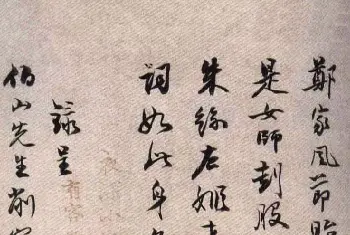 鄭家風節
是女師刲股
朱絲左姬
詞如此身
錄呈
伯山先生削